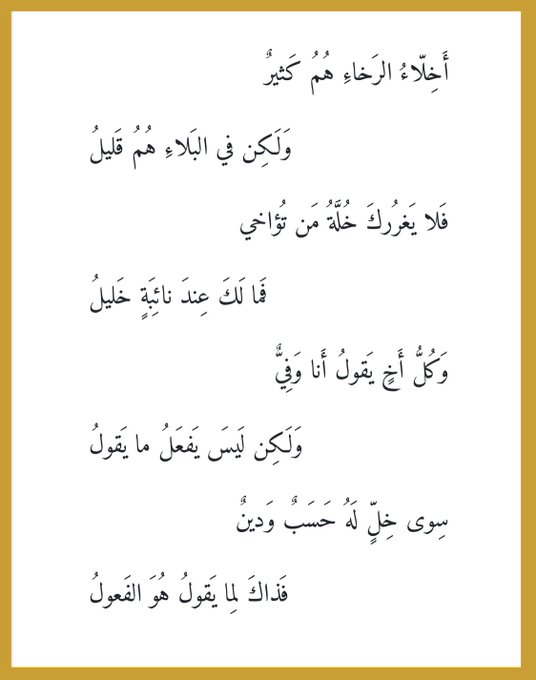 أَخِلّاءُ الرَخاءِ هُمُ كَثيرٌ
وَلَكِن في البَلاءِ هُمُ قَليلُ
فَلا يَغرُركَ خُلَّةُ مَن تُؤاخي
فَما لَكَ عِندَ نائِبَةٍ خَليلُ
وَكُلُّ أَخٍ يَقولُ أَنا وَفِيٌّ
وَلَكِن لَيسَ يَفعَلُ ما يَقولُ
سِوى خِلٍّ لَهُ حَسَبٌ وَدينٌ
فَذاكَ لِما يَقولُ هُوَ الفَعولُ